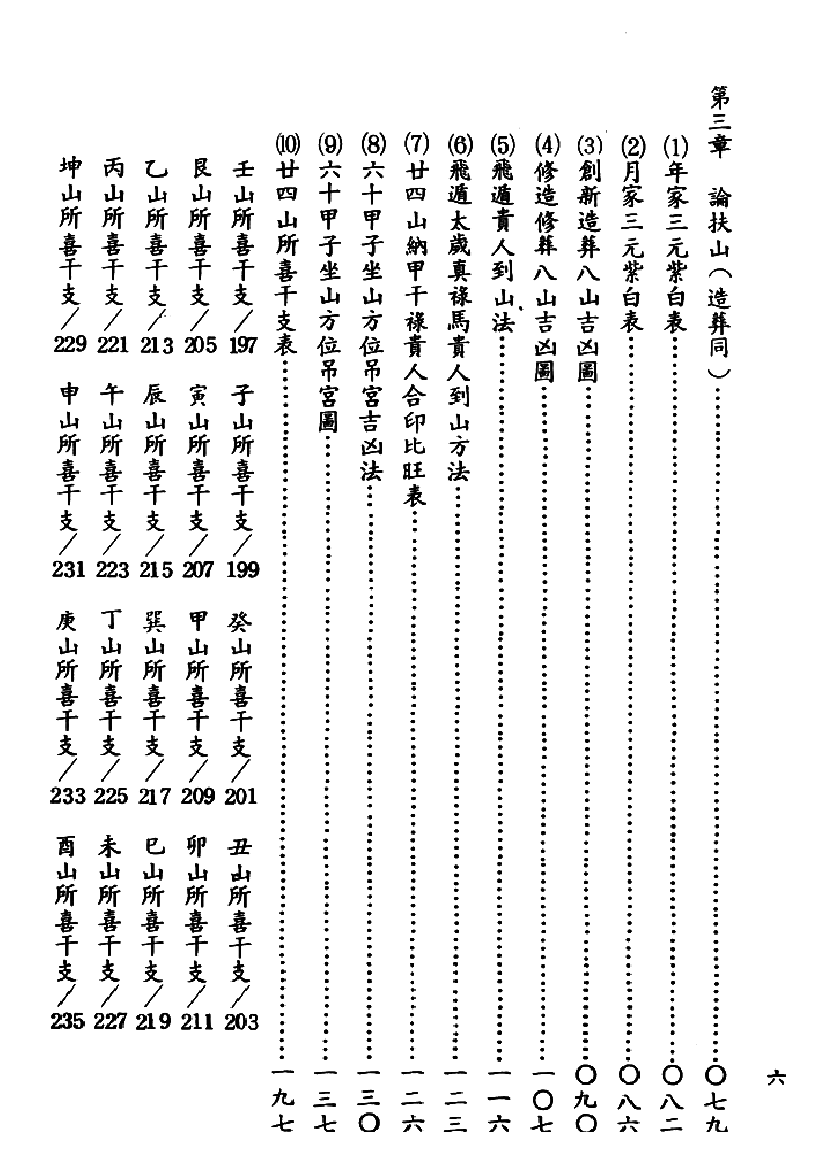 六
第三章　論扶山（造葬同）……〇七九
(1)年家三元紫白表……〇八二
(2)月家三元紫白表……〇八六
(3)創新造葬八山吉凶圖……〇九〇
(4)修造修葬八山吉凶圖……一〇七
(5)飛遁貴人到山法……一一六
(6)飛遁太歲真祿馬貴人到山方法……一二三
(7)廿四山納甲干祿貴人合印比旺表……一二六
(8)六十甲子坐山方位吊宮吉凶法……一三〇
(9)六十甲子坐山方位吊宮圖……一三七
(10)廿四山所喜干支表……一九七
壬山所喜干支/197　子山所喜干支/199　癸山所喜干支/201　丑山所喜干支/203
艮山所喜干支/205　寅山所喜干支/207　甲山所喜干支/209　卯山所喜干支/211
乙山所喜干支/213　辰山所喜干支/215　巽山所喜干支/217　巳山所喜干支/219
丙山所喜干支/221　午山所喜干支/223　丁山所喜干支/225　未山所喜干支/227
坤山所喜干支/229　申山所喜干支/231　庚山所喜干支/233　酉山所喜干支/235